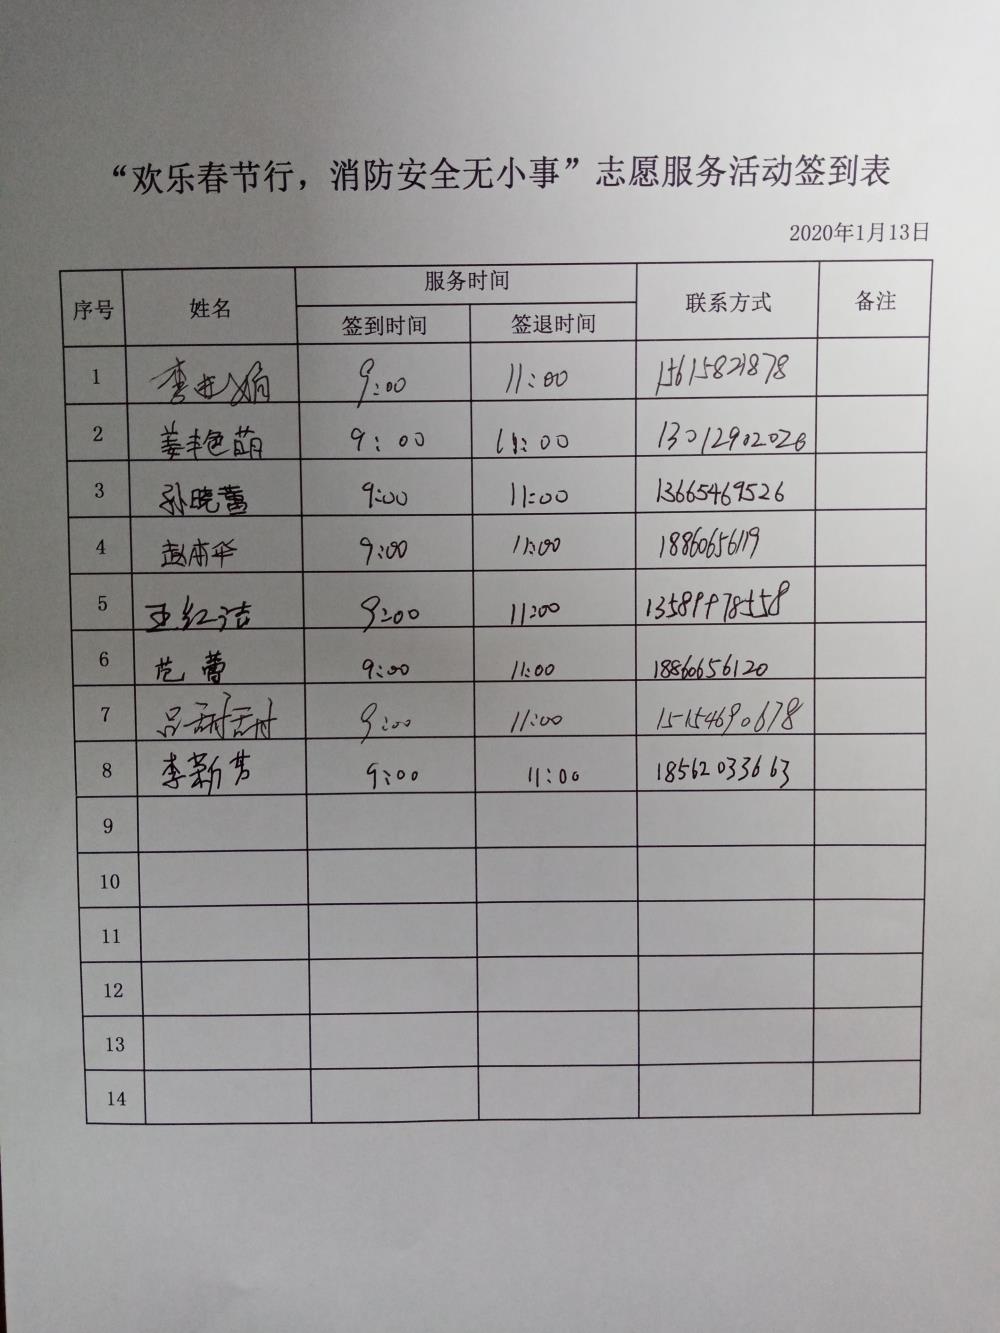 “欢乐春节行，消防安全无小事”志愿服务活动签到表
2020年1月13日
序号 姓名 服务时间 联系方式 备注
签到时间 签退时间
1 李 娟 9:00 11:00 15615821878
2 姜艳萌 9:00 11:00 13012902026
3 孙晓蕾 9:00 11:00 13665469526
4 赵 华 9:00 11:00 18860656119
5 王红洁 9:00 11:00 13589978558
6 范蕾 9:00 11:00 18860656120
7 吕甜甜 9:00 11:00 15154690678
8 李新芳 9:00 11:00 18562033663
9
10
11
12
13
14